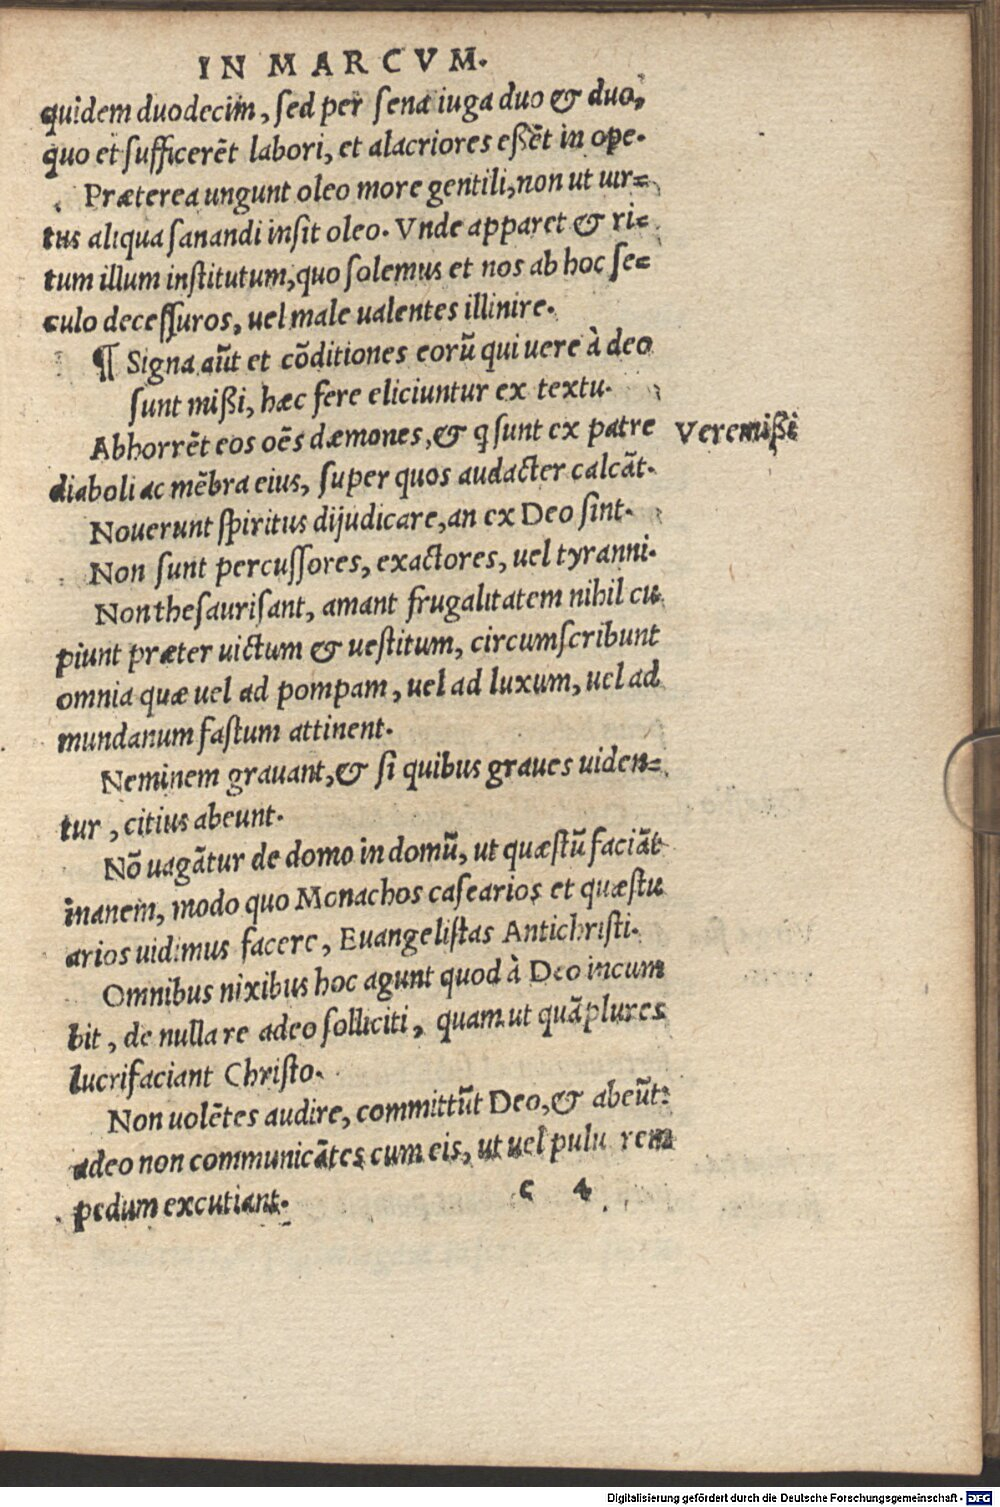 IN MARCVM.
quidem duodecim, sed per sena iuga duo & duo,
quo et sufficerēt labori, et alacriores eßēt in ope.
Præterea ungunt oleo more gentili, non ut uir=
tus aliqua sanandi insit oleo. Vnde apparet & ri=
tum illum institutum, quo solemus et nos ab hoc se=
culo decessuros, uel male ualentes illinire.
¶ Signa aūt et cōditiones eorū qui uere à deo
sunt mißi, hæc fere eliciuntur ex textu.
Abhorrēt eos oēs dæmones, & q sunt ex patre
Vere mißi
diaboli ac mēbra eius, super quos audacter calcāt.
Nouerunt spiritus dijudicare, an ex Deo sint.
Non sunt percussores, exactores, uel tyranni.
Non thesaurisant, amant frugalitatem nihil cu
piunt præter uictum & uestitum, circumscribunt
omnia quæ uel ad pompam, uel ad luxum, uel ad
mundanum fastum attinent.
Neminem grauant, & si quibus graues uiden=
tur, citius abeunt.
Nō uagātur de domo in domū, ut quæstū faciāt
inanem, modo quo Monachos casearios et quæstu
arios uidimus facere, Euangelistas Antichristi.
Omnibus nixibus hoc agunt quod à Deo incum
bit, de nulla re adeo solliciti, quam ut quāplures
lucrifaciant Christo.
Non uolētes audire, committūt Deo, & abeūt:
adeo non communicātes cum eis, ut uel pulu rem
pedum excutiant.
c 4
Digitalisierung gefördert durch die Deutsche Forschungsgemeinschaft - DFG